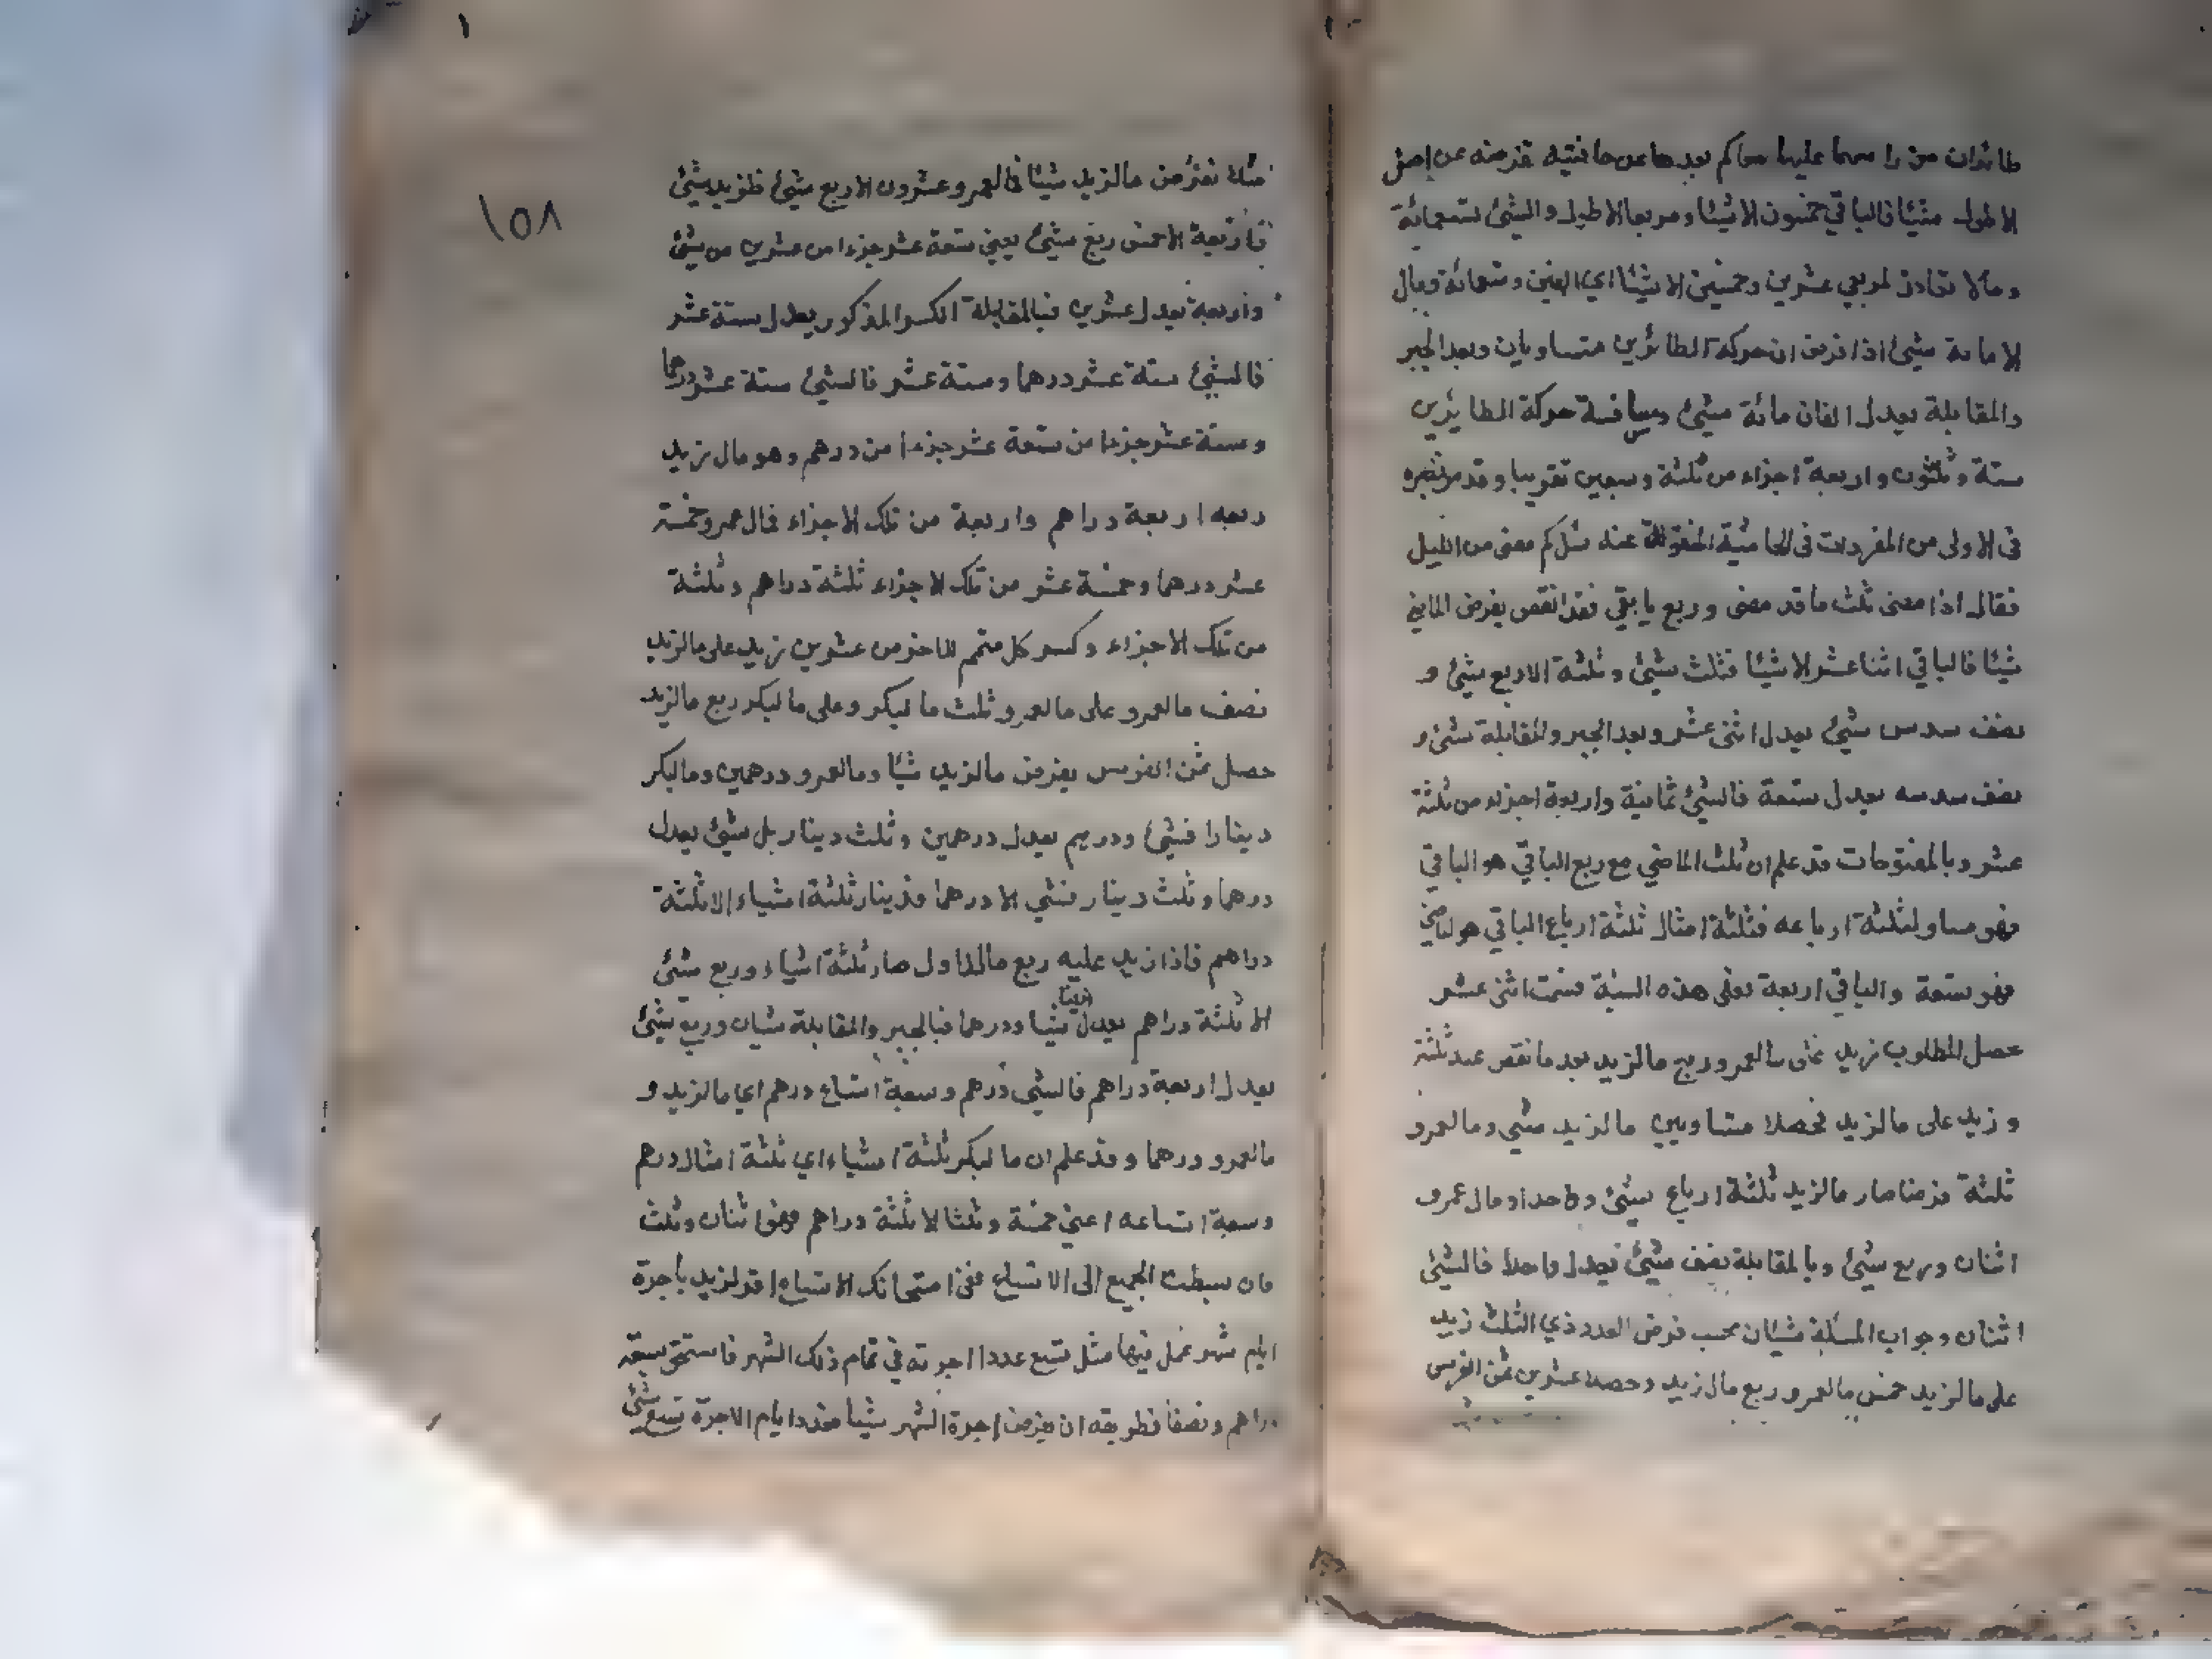 طائران من را سهما عليها معا كم بعدها عن حافتيه فرضنه عن اصل
الاطول شيئا فالباقي خمسون الا شيئا ومربعا الاطول والشئ تسعمائة
ومالا تعادل لمربعي عشرين وخمسين الا شيئا اي الفين وتسعمائة ومال
الا مائة شيئ اذا فرض ان حركة الطائرين متساويان وبعد الجبر
والمقابلة يعدل الفان مائة شيئ ومسافة حركة الطائرين
ستة وثلثون واربعة اجزاء من ثلثة وسبعين تقريبا وقد مر نظيره
في الاولى من المفردات في الحاشية المنقولة عنه سئل كم مضى من الليل
فقال اذا مضى ثلث ما قد مضى وربع ما بقي فقد انقص يفرض الماضي
شيئا فالباقي اثنا عشر الا شيئا فثلث شيئ وثلثة الا ربع شيئ و
نصف سدس شيئ يعدل اثنى عشر وبعد الجبر والمقابلة شئ و
نصف سدسه يعدل تسعة فالشئ ثمانية واربعة اجزاء من ثلثة
عشر وبالمفتوحات قد علم ان ثلث الماضي مع ربع الباقي هو الباقي
فهو مساو لثلثة ارباعه فثلثة امثال ثلثة ارباع الباقي هو الماضي
فهو تسعة والباقي اربعة فعلى هذه النسبة قسمت اثنى عشر
حصل المطلوب زيد على مالعمرو ربع مالزيد بعد ما نقص عنه ثلثة
و زيد على مالزيد فحصلا متساويين مالزيد شئي ومالعمرو
ثلثة فرضنا صار مالزيد ثلثة ارباع شيئ وواحدا ومال عمرو
اثنان وربع شيئ وبالمقابلة نصف شيئ يعدل واحدا فالشيئ
اثنان وجواب المسئلة شيئان بحسب فرض العدد ذي الثلث زيد
على مالزيد خمس مالعمرو ربع مال زيد وحصلا عشرين ثمن الفرس
١٥٨
مثلا نفرض مالزيد شيئا فالعمرو عشرون الا ربع شيئ فلزيد شيئ
واربعة الا خمس ربع شيئ يعني تسعة عشر جزءا من عشرين من شيئ
واربعة يعدل عشرين فبالمقابلة الكسر المذكور يعدل ستة عشر
فالشيئ ستة عشر درهما وستة عشر فالشيئ ستة عشر درهما
وستة عشر جزءا من تسعة عشر جزءا من درهم وهو مال زيد
ربعه اربعة دراهم واربعة من تلك الاجزاء فمال عمرو خمسة
عشر درهما وخمسة عشر من تلك الاجزاء ثلثة دراهم وثلثة
من تلك الاجزاء وكسر كل متمم للاخر من عشرين زيد على مالزيد
نصف مالعمرو على مالعمرو ثلث ما لبكر وعلى ما لبكر ربع مالزيد
حصل ثمن الفرس يفرض مالزيد شيئا ومالعمرو درهمين ومالبكر
دينارا فشيئ ودرهم يعدل درهمين وثلث دينار بل شيئ يعدل
درهما وثلث دينار فشئي الا درهما فدينار ثلثة اشياء الا ثلثة
دراهم فاذا زيد عليه ربع مالاول صار ثلثة اشياء وربع شئ
الا ثلثة دراهم يعدل ايضا شيئا ودرهما فبالجبر والمقابلة شيئان وربع شيئ
يعدل اربعة دراهم فالشئ درهم وسبعة اتساع درهم اي مالزيد و
مالعمرو درهما وقد علم ان ما لبكر ثلثة اشياء اي ثلثة امثال درهم
وسبعة اتساعه اعني خمسة وثلثا الا ثلثة دراهم فهو اثنان وثلث
فان بسطت الجميع الى الاتساع ففي امتحانك الاتساع اقر لزيد باجرة
ايام شهر عمل فيها مثل تسع عدد اجرته في تمام ذلك الشهر فاستحق تسعة
دراهم ونصفا فطريقه ان يفرض اجرة الشهر شيئا فعدد ايام الاجرة تسع شئ